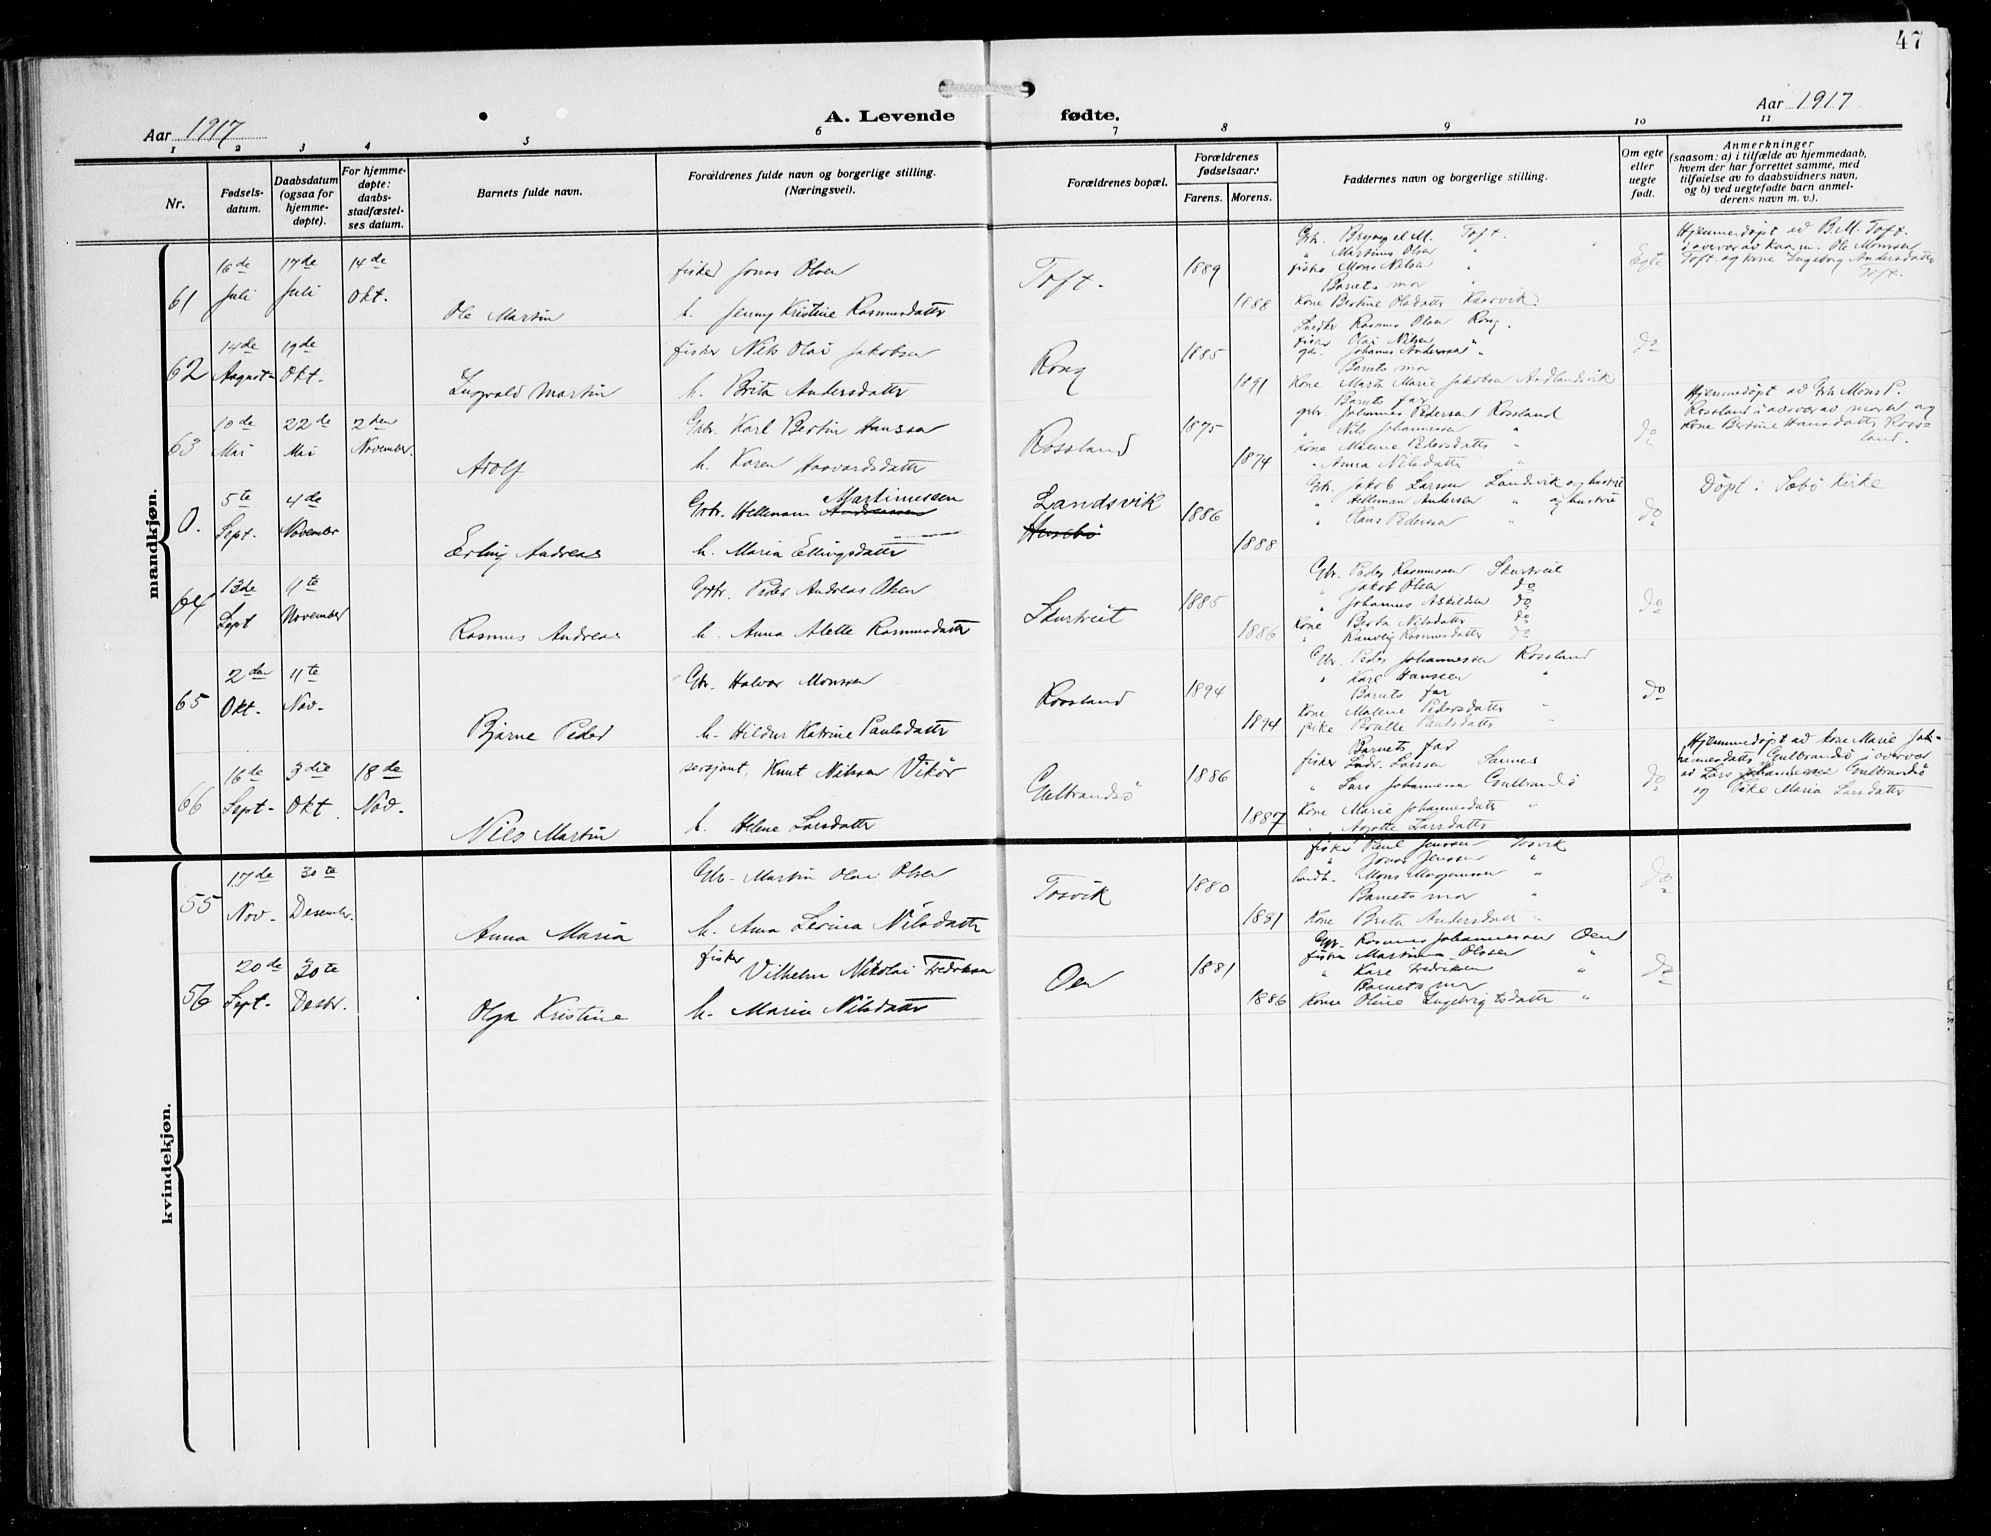 47
Aar 1917 A. Levende fødte. Aar 1917
1 2 3 4 5 6 7 8 9 10 11
Nr.
Fødsels-
datum.
Daabsdatum
(ogsaa for
hjemme-
døpte).
For hjemme-
døpte:
daabs-
stadfæstel-
ses datum.
Barnets fulde navn.
Forældrenes fulde navn og borgerlige stilling.
(Næringsvei).
Forældrenes bopæl.
Forældrenes
fødselsaar:
Farens. Morens.
Faddernes navn og borgerlige stilling.
Om egte
eller
uegte
født.
Anmerkninger
(saasom: a) i tilfælde av hjemmedaab,
hvem der har forrettet samme, med
tilføielse av to daabsvidners navn,
og b) ved uegtefødte barn anmel-
derens navn m. v.).
mandkjøn.
61
16de Juli
17de Juli
14de Okt.
Ole Martin
fisker Jonas Olsen
h. Jenny Kristine Rasmusdatter
Toft.
1889
1888
Gbr. Brynjel M. Toft.
" Martinus Olsen "
fisker Mons Nilsen "
Barnets mor "
Kone Bertine Olsdatter
Egte
Hjemmedøpt av B.M. Toft.
i overvær av Ole Monsen
Toft. og kone Ingeborg Andersdatter
Toft.
62
14de August
19de Okt.
Ingvald Martin
fisker Nils Olai Jakobsen
h. Brita Andersdatter
Rong
1885
1891
Rasmus Olsen Rong.
fisker Olai Nilsen "
Johannes Andersen "
Barnets mor
Kone Marta Marie Jakobsen
do
63
10de Mai
22de Mai
2den November.
Adolf
Gbr. Karl Bertin Hanssen
h. Karen Haavardsdatter
Rossland
1875
1874
Barnets far
gbr. Johannes Pedersen Rossland
" Nils Johannessen "
Kone Malene Pedersdatter "
" Anna Nilsdatter "
do
Hjemmedøpt av Gbr Mons P.
Rossland i overvær av moren og
kone Bertine Hansdatter Ross-
land.
0.
5te Sept.
4de November
Erling Andreas
Martinussen
Gbr. Helleman Andreassen
h. Maria Ellingsdatter
Landsvik
Husebø
1886
1888
Gbr. Jakob Larsen Landsvik og hustru
" Helleman Andersen " og hustru
" Hans Pedersen "
do
Döpt i Sæbö Kirke
64
13de Sept
4te November
Rasmus Andreas
Gbr. Peder Andreas Olsen
h. Anna Alette Rasmusdatter
Skurtveit
1885
1886
Gbr. Peder Rasmussen Skurtveit
" Jakob Olsen do
" Johannes Askildsen do
Kone Berta Nilsdatter do
" Rasmusdatter do
do
65
2den Okt.
4te Nov.
Bjarne Peder
Gbr. Halvor Monssen
h. Hildur Katrine Paulsdatter
Rossland
1894
1894
Gbr. Peder Johannessen Rossland
" Karl Hansen "
Barnets far
Kone Malene Pedersdatter "
pike Paulsdatter "
do
66
16de Sept.
3die Okt.
18de Nov.
Nils Martin
sersjant, Knut Nilsen Vikör
h. Helene Larsdatter
Gulbrandsö
1886
1887
Barnets far
fisker Larsen
" Lars Johannesen Gulbrandsö
Kone Marie Johannesdatter "
" Larsdatter
do
Hjemmedøpt av kone Marie Joh-
annesdatter, Gulbrandsö i overvær
av Lars Johannesen Gulbrandsö
og Pike Maria Larsdatter
kvindekjøn.
55
17de Nov.
30te Desember.
Anna Maria
Gbr. Martin Olai Olsen
h. Anna Nilsdatter
Tosvik
1880
1881
fisker Paul Jensen Tosvik
" Jonas Jenssen "
Mons Mogensen "
Barnets mor "
Kone Brita Andersdatter "
do
56
20de Sept.
30te Desbr.
Olga Kristine
fisker Vilhelm Nikolai Fredriksen
h. Maria Nilsdatter
Oen
1881
1886
Gbr. Rasmus Johannessen Oen
fisker Martinus Olsson "
" Karl Fredriksen "
Barnets mor
Kone Oline Ingebrigtsdatter "
do